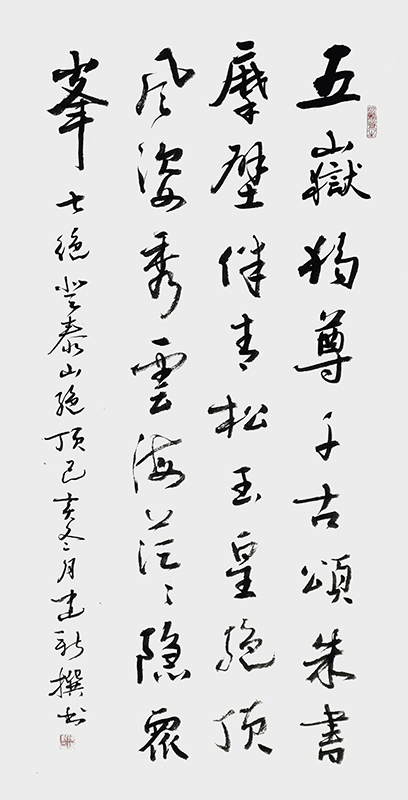 五嶽獨尊千古頌朱書
摩壁伴青松玉皇絶頂
風姿秀雲海茫〻隱眾
峯
七絶登泰山絶頂己亥冬月建新撰書